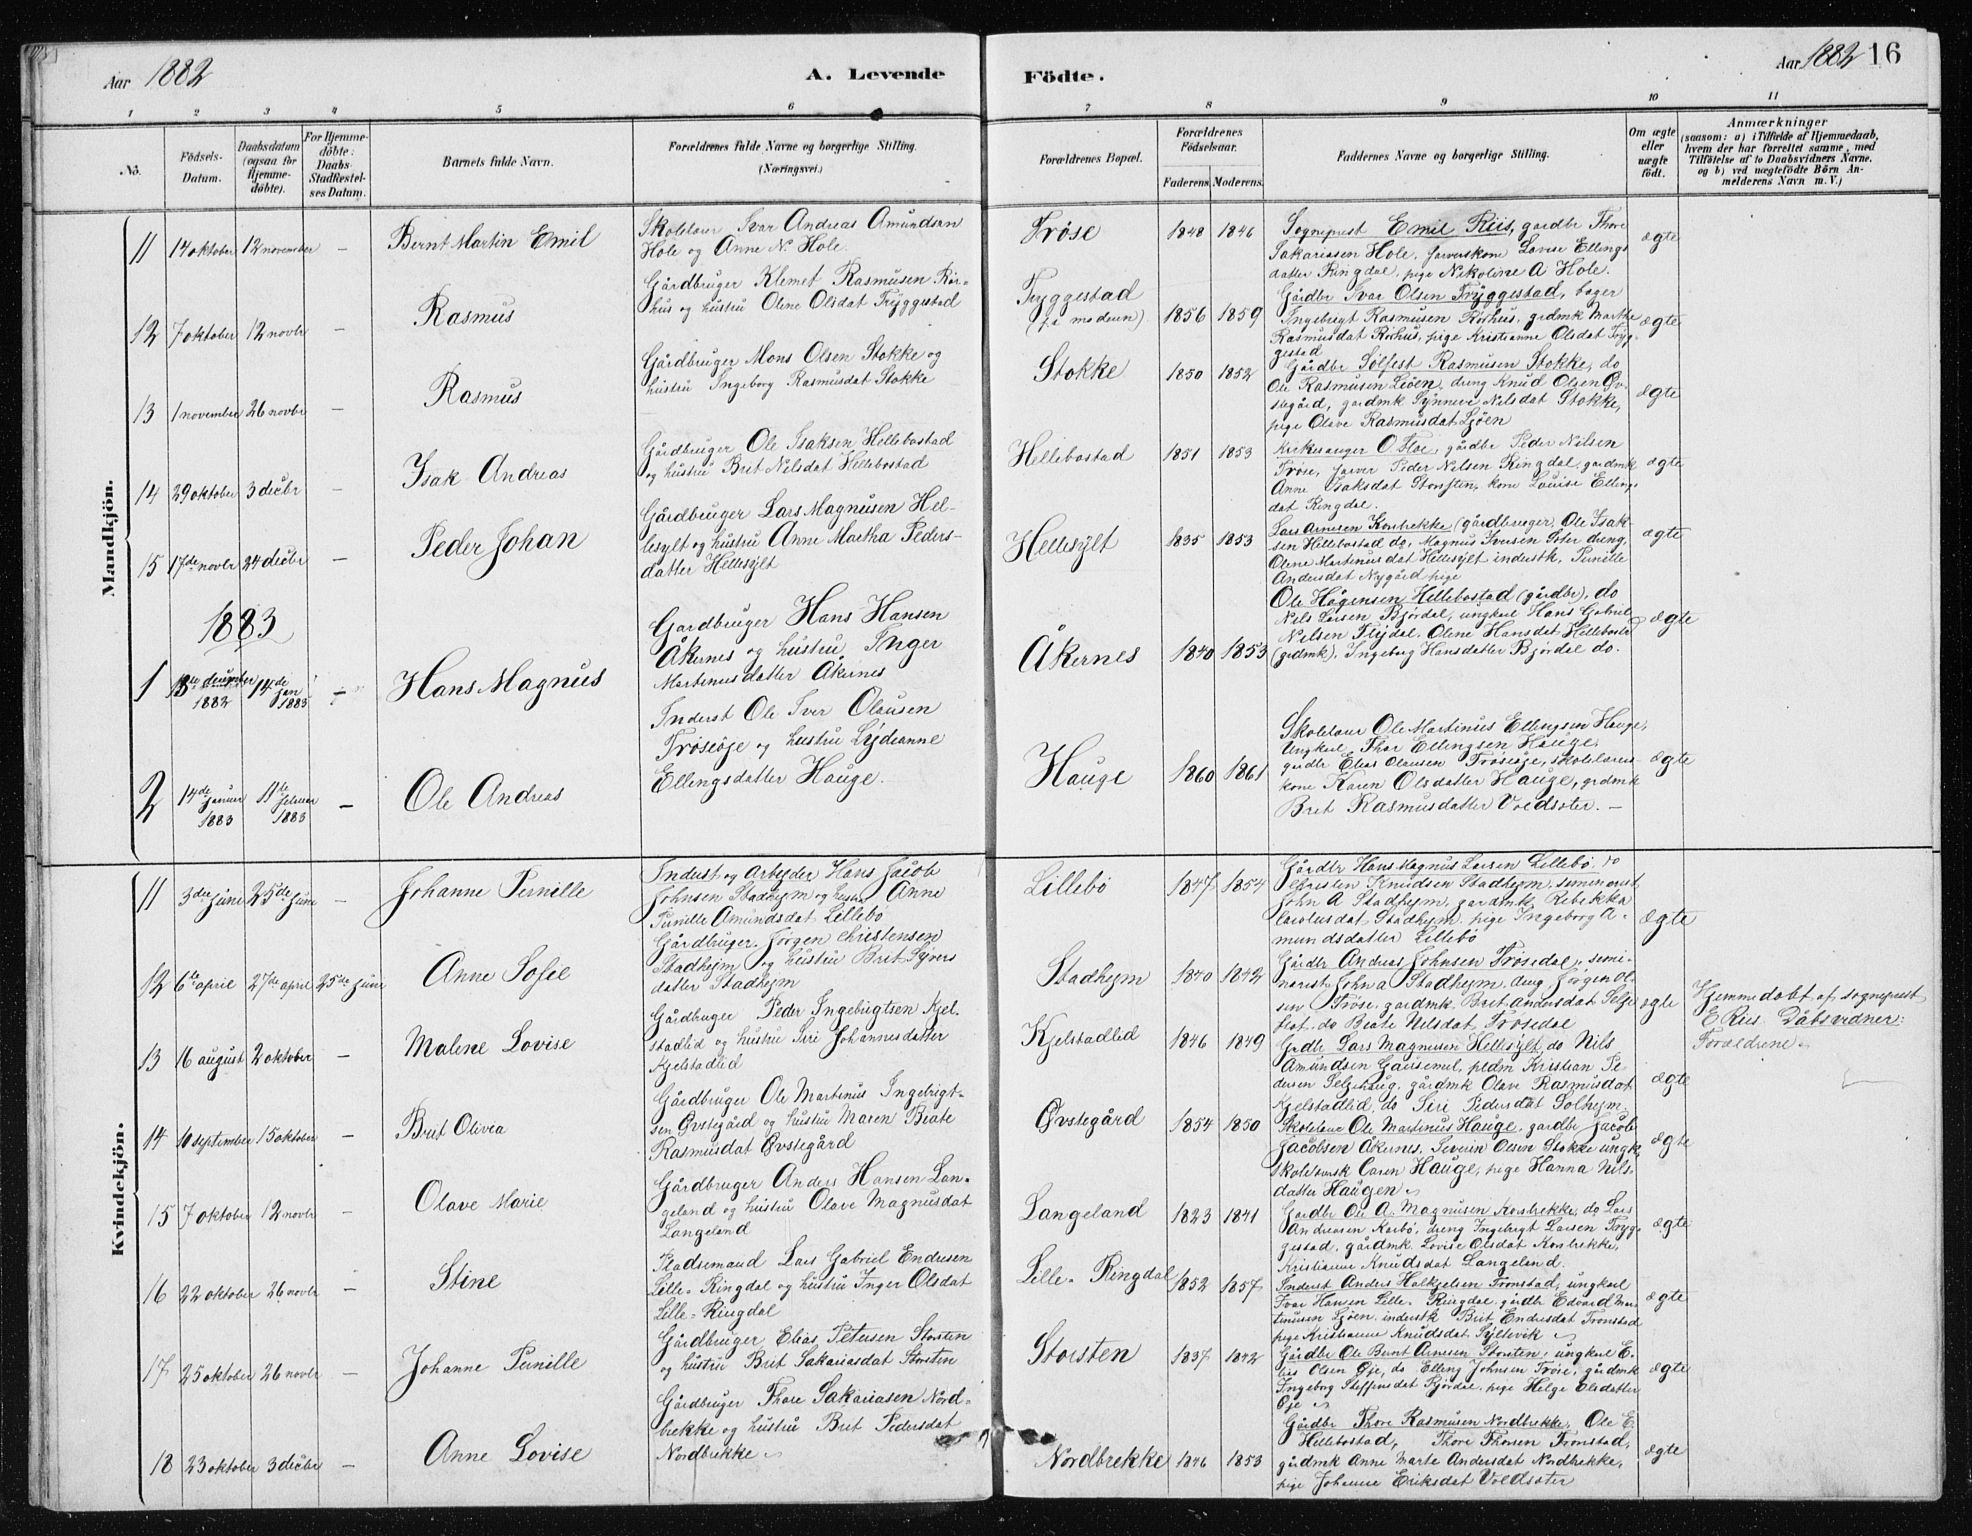 Aar 1882
A. Levende Födte.
Aar 1882 16
1 2 3 4 5 6 7 8 9 10 11
No.
Födsels-
Datum.
Daabsdatum
(ogsaa for
Hjemme-
döbte).
For Hjemme-
döbte:
Daabs-
Stadfæstel-
ses Datum.
Barnets fulde Navn.
Forældrenes fulde Navne og borgerlige Stilling.
(Næringsvei.)
Forældrenes Bopæl.
Forældrenes
Födselsaar.
Faderens. Moderens.
Faddernes Navne og borgerlige Stilling.
Om ægte
eller
uægte
födt.
Anmærkninger
(saasom: a) i Tilfælde af Hjemmedaab,
hvem der har forrettet samme, med
Tilföielse af to Daabsvidners Navne.
og b) ved uægtefödte Börn An-
melderens Navn m. V.)
Mandkjön.
11 14 oktober 12 november - Bernt Martin Emil
Skolelærer Ivar Andreas Amundsen
Hole og Anne N Hole.
Trøse 1848 1846
Sognepræst Emil Riis, gardbr Thore
Sakariassen Hole, farverskone Lovise Ellings
datter Ringdal, pige Nikoline A Hole.
ægte
12 7 oktober 12 novbr - Rasmus
Gårdbruger Klemet Rasmusen Rør-
hus og hustru Oline Olsdat Tryggestad
Tryggestad
(på modern) 1856 1859
Gårdbr Ivar Olsen Tryggestad, bager
Ingebrigt Rasmusen Rørhus, grdmk Marthe
Rasmusdat Rørhus, pige Kristianne Olsdat Tryg-
gestad
ægte
13 1 november 26 novbr - Rasmus
Gårdbruger Mons Olsen Stokke og
hustru Ingeborg Rasmusdat Stokke
Stokke 1850 1852
Gårdbr Sølfest Rasmusen Stokke, do
Ole Rasmusen Ljøen, dreng Knud Olsen Øv-
stegård, gardmk Synneve Nilsdat Stokke,
pige Olave Rasmusdat Ljøen
ægte
14 29 oktober 3 decbr - Isak Andreas
Gårdbruger Ole Isaksen Hellebostad
og hustru Brit Nilsdat Hellebostad
Hellebostad 1851 1853
Kirkesanger O Floe, gårdbr Peder Nilsen
Trøse, farver Peder Nilsen Ringdal, gardmk
Anne Isaksdat Storsten, kone Louise Ellings
dat Ringdal.
ægte
15 17de novbr 24 decbr - Peder Johan
Gårdbruger Lars Magnusen Hel-
lesylt og hustru Anne Martha Peders-
datter Hellesylt
Hellesylt 1835 1853
Lars Arnesen Korsbrekke (gårdbruger), Ole Isak-
sen Hellebostad do, Magnus Iversen Sæter dreng,
Oline Martinusdat Hellesylt inderstk, Pernille
Andersdat Nygård pige
ægte
1883
1 december 1882 14de jan 1883 - Hans Magnus
Gardbruger Hans Hansen
Åkernes og hustru Inger
Martinusdatter Åkernes
Åkernes 1840 1853
Ole Hågensen Hellebostad (gårdbr), do
Nils Larsen Bjørdal, ungkarl Hans Gabriel
Nilsen Flydal, Oline Hansdat Hellebostad
(grdmk), Ingeborg Hansdatter Bjørdal do.
ægte
2 14de januar 1883 11te februar 1883 - Ole Andreas
Inderst Ole Iver Olausen
Trøseøje og hustru Lydeanne
Ellingsdatter Hauge.
Hauge 1860 1861
Skolelærer Ole Martinius Ellingsen Hauge,
Ungkarl Thor Ellingsen Hauge,
grdbr Elias Olausen Trøseøje, skolelærer-
kone Karen Olsdatter Hauge, grdmk
Brit Rasmusdatter Voldsæter. -
ægte
Kvindekjön.
11 3die juni 25de juni - Johanne Pernille
Inderst og Arbejder Hans Jacob
Johnsen Stadhejm og hustru Anne
Pernille Amundsdat Lillebø
Lillebø 1847 1854
Gårdbr Hans Magnus Larsen Lillebø, do
Christen Knudsen Stadhejm, seminarist
John A Stadhejm, gardmk Rebekka
Stadhejm, pige Ingeborg A-
mundsdatter Lillebø
ægte
12 6te april 27de april 25de juni Anne Sofie
Gårdbruger Jørgen Christensen
Stadhejm og hustru Brit Syvers
datter Stadhejm
Stadhejm 1840 1842
Gårdbr Andreas Johnsen Trøsedal, semi-
narist John A Stadhejm, dreng Jørgen Ol-
sen Trøse, gardmk Brit Andersdat Selje
flot, do Beate Nilsdat Trøsedal
ægte
Hjemmedøbt af sognepræst
E Riis. Dåbsvidner:
Forældrene.
13 16 august 2 oktober - Malene Lovise
Gårdbruger Peder Ingebrigtsen Kjel-
stadlid og hustru Siri Johannesdatter
Kjelstadlid
Kjelstadlid 1846 1849
Grdbr Lars Magnusen Hellesylt, do Nils
Amundsen Gausemel, pedm Kristian Pe-
dersen Seljehaug, gårdmk Olave Rasmusdat
Kjelstadlid, do Siri Pedersdat Solhejm
ægte
14 10 september 15 oktober - Brit Olivea
Gårdbruger Ole Martinus Ingebrigt-
sen Øvstegård og hustru Maren Beate
Rasmusdat Øvstegård
Øvstegård 1854 1850
Skolelærer Ole Martinus Hauge, gardbr Jacob
Jacobsen Åkernes, Severin Olsen Stokke ungk,
skolelærersk Caren Hauge, pige Hanna Nils-
datter Haugen
ægte
15 7 oktober 12 novbr - Olave Marie
Gårdbruger Anders Hansen Lan-
geland og hustru Olave Magnusdat
Langeland
Langeland 1823 1841
Gårdbr Ole A. Magnusen Korsbrekke, do Lars
Andreasen Karbø, dreng Ingebrigt Larsen Tryg-
gestad, gårdmk Lovise Olsdat Korsbrekke,
Kristianne Knudsdat Langeland.
ægte
16 22 oktober 26 novbr - Stine
Pladsemand Lars Gabriel Endresen
Lille-Ringdal og hustru Inger Olsdat
Lille-Ringdal
Lille-Ringdal 1852 1857
Inderst Anders Halkjelsen Tronstad, ungkarl
Ivar Hansen Lille-Ringdal, gårdbr Edvard Mar-
tinusen Ljøen, inderstk Brit Endresdat Tronstad
pige Kristianne Knudsdat Syltevik
ægte
17 25 oktober 26 novbr - Johanne Pernille
Gårdbruger Elias Petersen Storsten
og hustru Brit Sakariasdat Storsten
Storsten 1837 1842
Gårdbr Ole Bernt Arnesen Storsten, ungkarl E-
lias Olsen Øje, do Elling Johnsen Trøse, gårdmk
Ingeborg Steffensdat Bjørdal, pige Helge Elsdatter
Øje
ægte
18 23 oktober 3 decbr - Anne Lovise
Gårdbruger Thore Sakariasen Nord-
brekke og hustru Brit Pedersdat
Nordbrekke
Nordbrekke 1846 1853
Gårdbr Thore Rasmusen Nordbrekke, Ole E
Hellebostad, Thore Thorsen Tronstad,
gårdmk Anne Marte Andersdat Nordbrekke,
pige Johanne Eriksdat Voldsæter
ægte